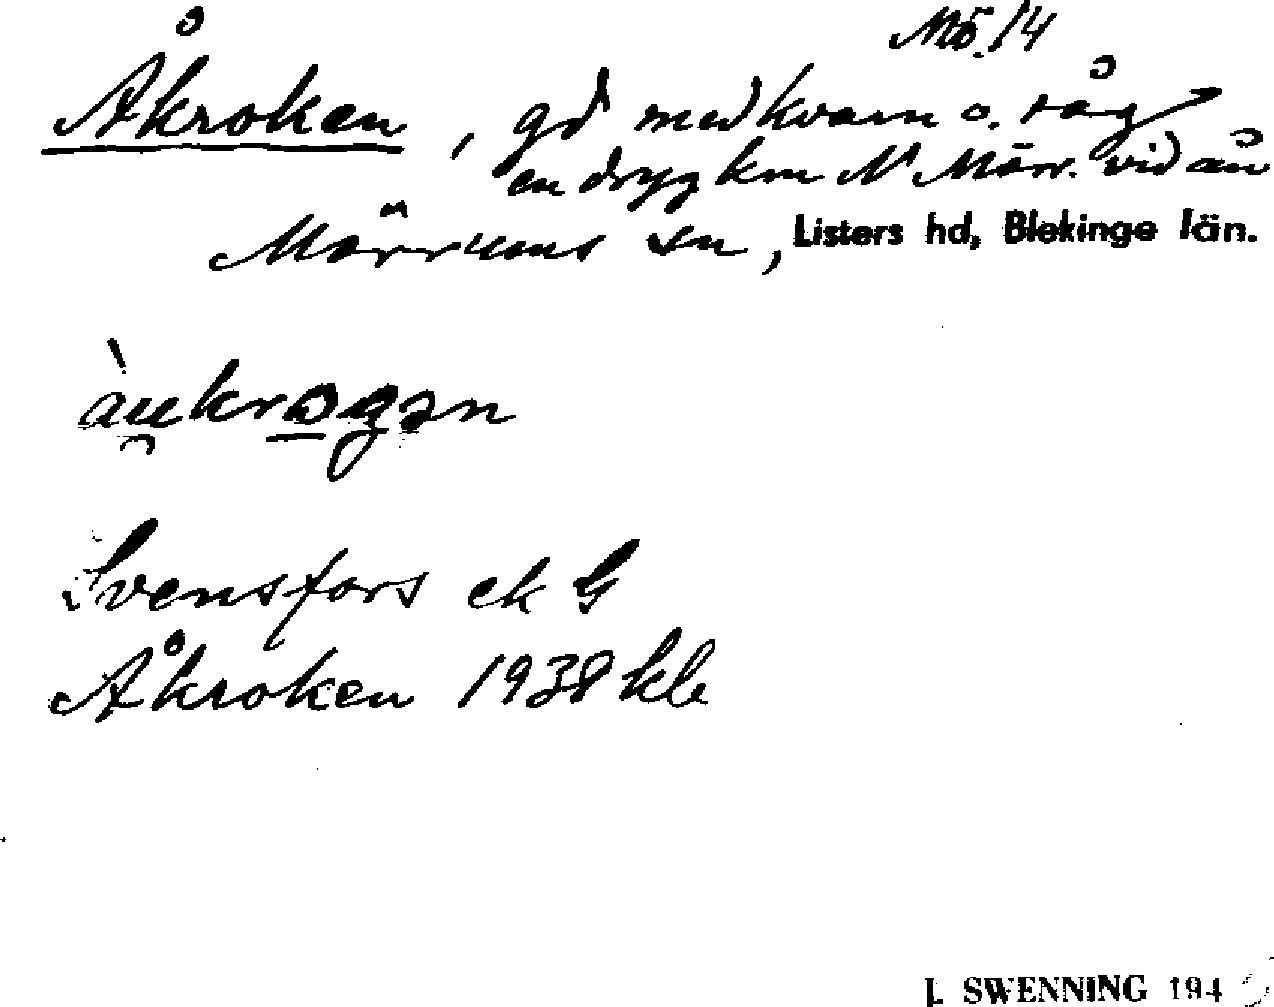 Mö. 14
Åkroken, gd med kvarn o. såg
en dryg km N Mörr. vid ån
Mörrums sn, Listers hd, Blekinge län.
àu̯krɔgən
Svensfors ek G
Åkroken 1938 kb
J. SWENNING 194